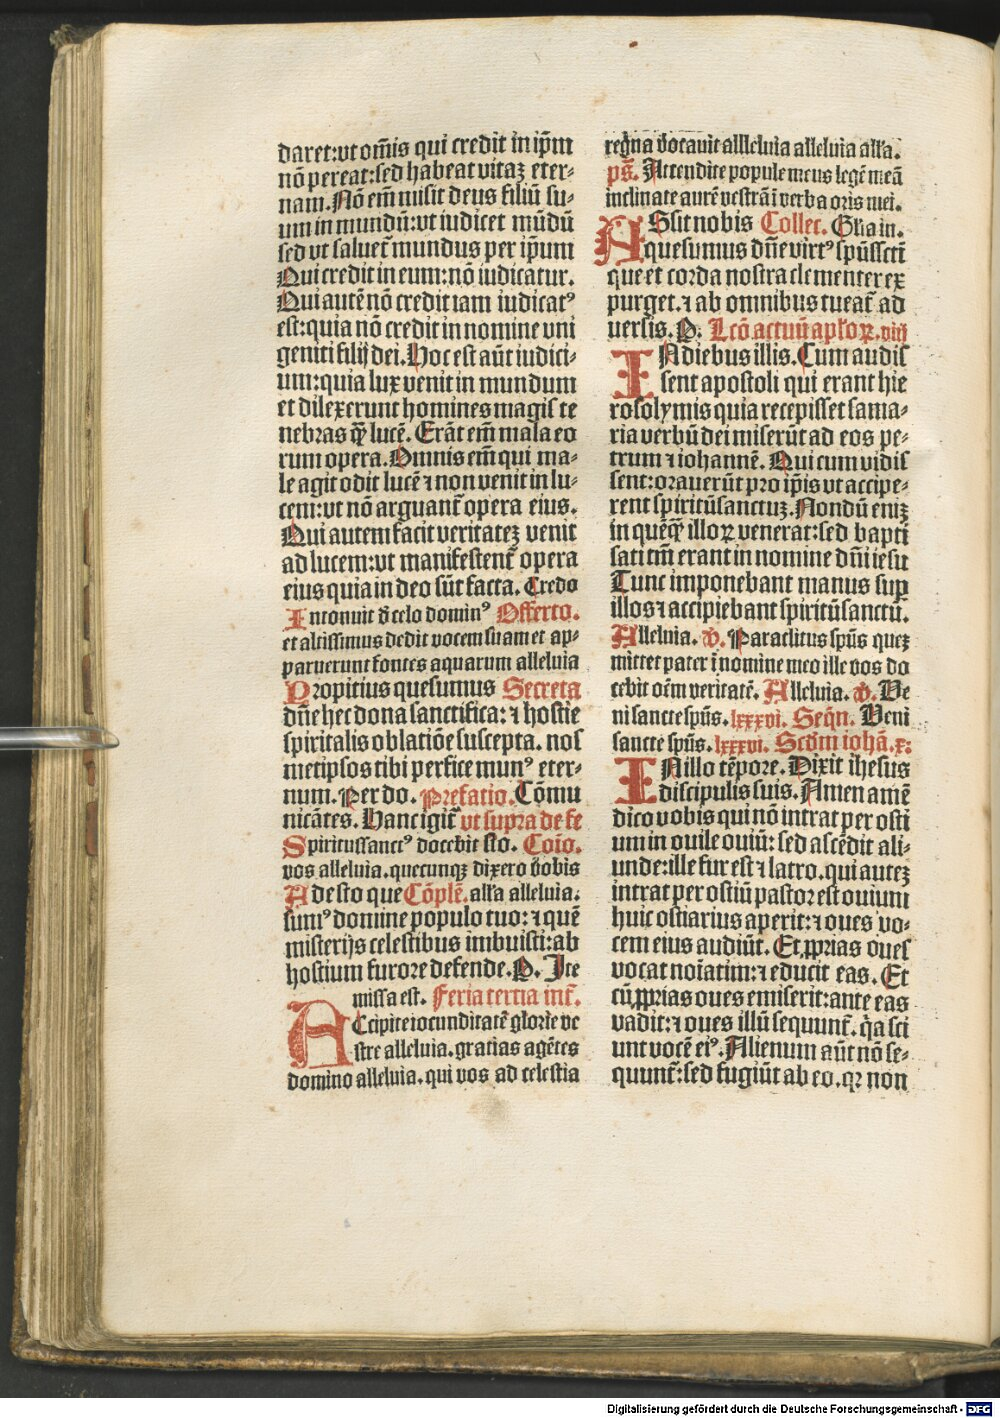 daret:vt om̄is qui credit in ip̄m
nō pereat:sed habeat vitaꝫ eter-
nam. Nō em̄ misit deus filiū su-
um in mundū:vt iudicet mūdū
sed vt saluet̄ mundus per ip̄um
Qui credit in eum:nō iudicatur.
Qui autē nō credit iam iudicatꝰ
est:quia nō credit in nomine vni
geniti filij dei. Hoc est aūt iudici-
um:quia lux venit in mundum
et dilexerunt homines magis te
nebras qͣꝫ lucē. Erāt em̄ mala eo
rum opera. Omnis em̄ qui ma-
le agit odit lucē ⁊ non venit in lu-
cem:vt nō arguant̄ opera eius.
Qui autem facit veritateꝫ venit
ad lucem:vt manifestent̄ opera
eius quia in deo sūt facta. Credo
Intonuit de celo dominꝰ Offerto.
et altissimus dedit vocem suam et ap-
paruerunt fontes aquarum alleluia
Propitius quesumus Secreta
dn̄e hec dona sanctifica: ⁊ hostie
spiritalis oblatiōe suscepta. nos
metipsos tibi perfice munꝰ eter-
num. Per do. Prefatio. Cōmu
nicātes. Hanc igit̄ vt supra de fe
Spiritussanctꝰ docebit sto. Coīo.
vos alleluia. quecunqꝫ dixero vobis
Adesto que Cōplē. alľa alleluia.
sumꝰ domine populo tuo: ⁊ quē
misterijs celestibus imbuisti:ab
hostium furore defende. P. Ite
missa est. Feria tertia int̄.
Accipite iocunditatē glorie ve
stre alleluia. gratias agētes
domino alleluia. qui vos ad celestia
regna vocauit allleluia alleluia alľa.
ps̄. Attendite popule meus legē meā
inclinate aurē vestrā ī verba oris mei.
ASsit nobis Collec. Glia in.
quesumus dn̄e virtꝰ spūssctī
que et corda nostra clementer ex
purget. ⁊ ab omnibus tueat̄ ad
uersis. P. Lcō actuū apľoꝝ. viij
INdiebus illis. Cum audis
sent apostoli qui erant hie
rosolymis quia recepisset sama-
ria verbū dei miserūt ad eos pe-
trum ⁊ iohannē. Qui cum vidis
sent:orauerūt pro ip̄is vt accipe-
rent spiritūsanctuꝫ. Nondū eniꝫ
in quēqͣꝫ illoꝝ venerat:sed bapti
sati tm̄ erant in nomine dn̄i iesu
Tunc imponebant manus sup̄
illos ⁊ accipiebant spiritūsanctū.
Alleluia. v̄. Paraclitus spūs queꝫ
mittet pater ī nomine meo ille vos do
cebit oēm veritatē. Alleluia. v̄. Ve
ni sancte spūs. lxxxvi. Seqn̄. Veni
sancte spūs. lxxxvi. Scd̄m iohā. x:
INillo tēpore. Dixit ihesus
discipulis suis. Amen amē
dico vobis qui nō intrat per osti
um in ouile ouiū: sed ascēdit ali-
unde:ille fur est ⁊ latro. qui auteꝫ
intrat per ostiū pastor est ouium
huic ostiarius aperit: ⁊ oues vo-
cem eius audiūt. Et ꝓprias oues
vocat noīatim: ⁊ educit eas. Et
cū ꝓprias oues emiserit:ante eas
vadit: ⁊ oues illū sequunt̄. qͥa sci
unt vocē eiꝰ. Alienum aūt nō se-
quunt̄:sed fugiūt ab eo. qꝛ non
Digitalisierung gefördert durch die Deutsche Forschungsgemeinschaft - DFG